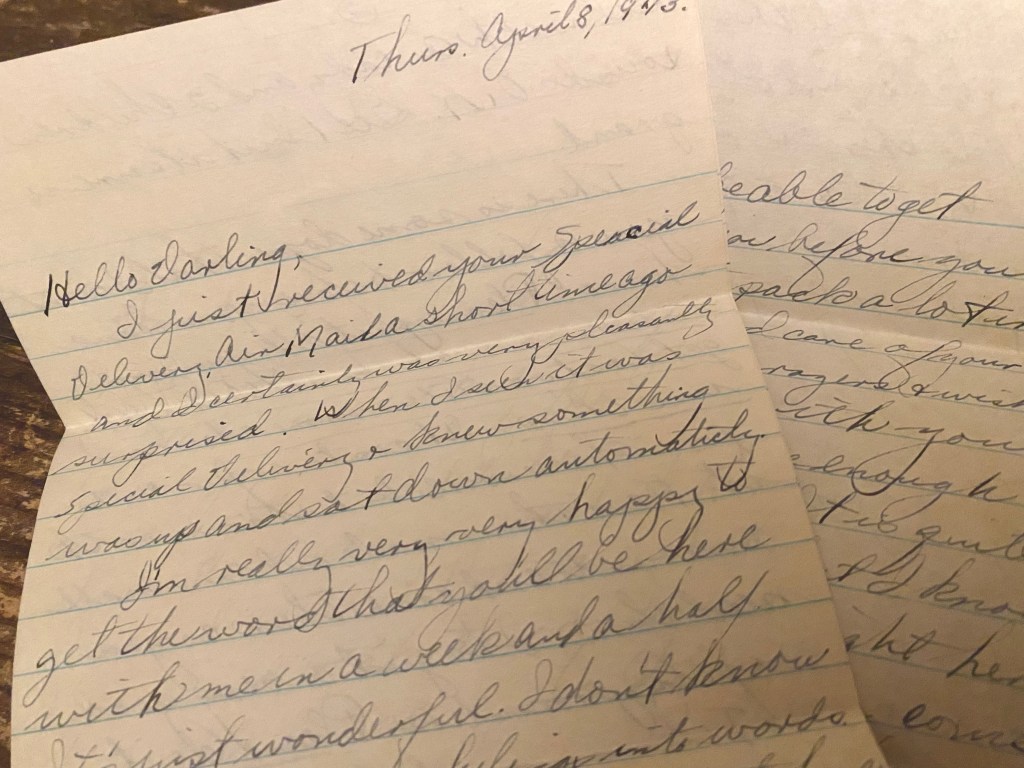 Thurs. April 8, 1943.
Hello Darling,
I just received your Speacial
Delivery, Air Mail a short time ago
and I certainly was very pleasantly
surprised. When I seen it was
Special Delivery I knew something
was up and sat down automaticly.
I'm really very very happy to
get the word that you'll be here
with me in a week and a half.
It's just wonderful. I don't know
into words.
be able to get
before you
pack a lot in
care of your
wish
with you
enough
quite
I know
right here
come